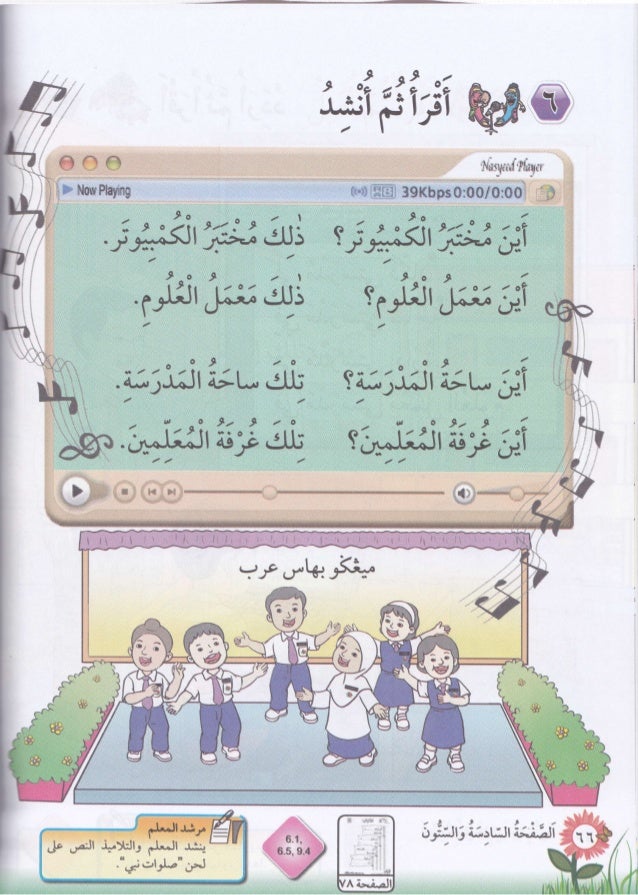 ٦ أَقْرَأُ ثُمَّ أُنْشِدُ
Nasyeed Player
Now Playing 39Kbps 0:00/0:00
أَيْنَ مُخْتَبَرُ الْكُمْبِيُوتَر؟ ذٰلِكَ مُخْتَبَرُ الْكُمْبِيُوتَر.
أَيْنَ مَعْمَلُ الْعُلُومِ؟ ذٰلِكَ مَعْمَلُ الْعُلُومِ.
أَيْنَ ساحَةُ الْمَدْرَسَةِ؟ تِلْكَ ساحَةُ الْمَدْرَسَةِ.
أَيْنَ غُرْفَةُ الْمُعَلِّمِينَ؟ تِلْكَ غُرْفَةُ الْمُعَلِّمِينَ.
ميڠڬو بهاس عرب
مرشد المعلم
ينشد المعلم والتلاميذ النص على
لحن "صلوات نبي".
6.1,
6.5, 9.4
الصفحة ٧٨
اَلصَّفْحَةُ السّادِسَةُ وَالسِّتُّونَ
٦٦